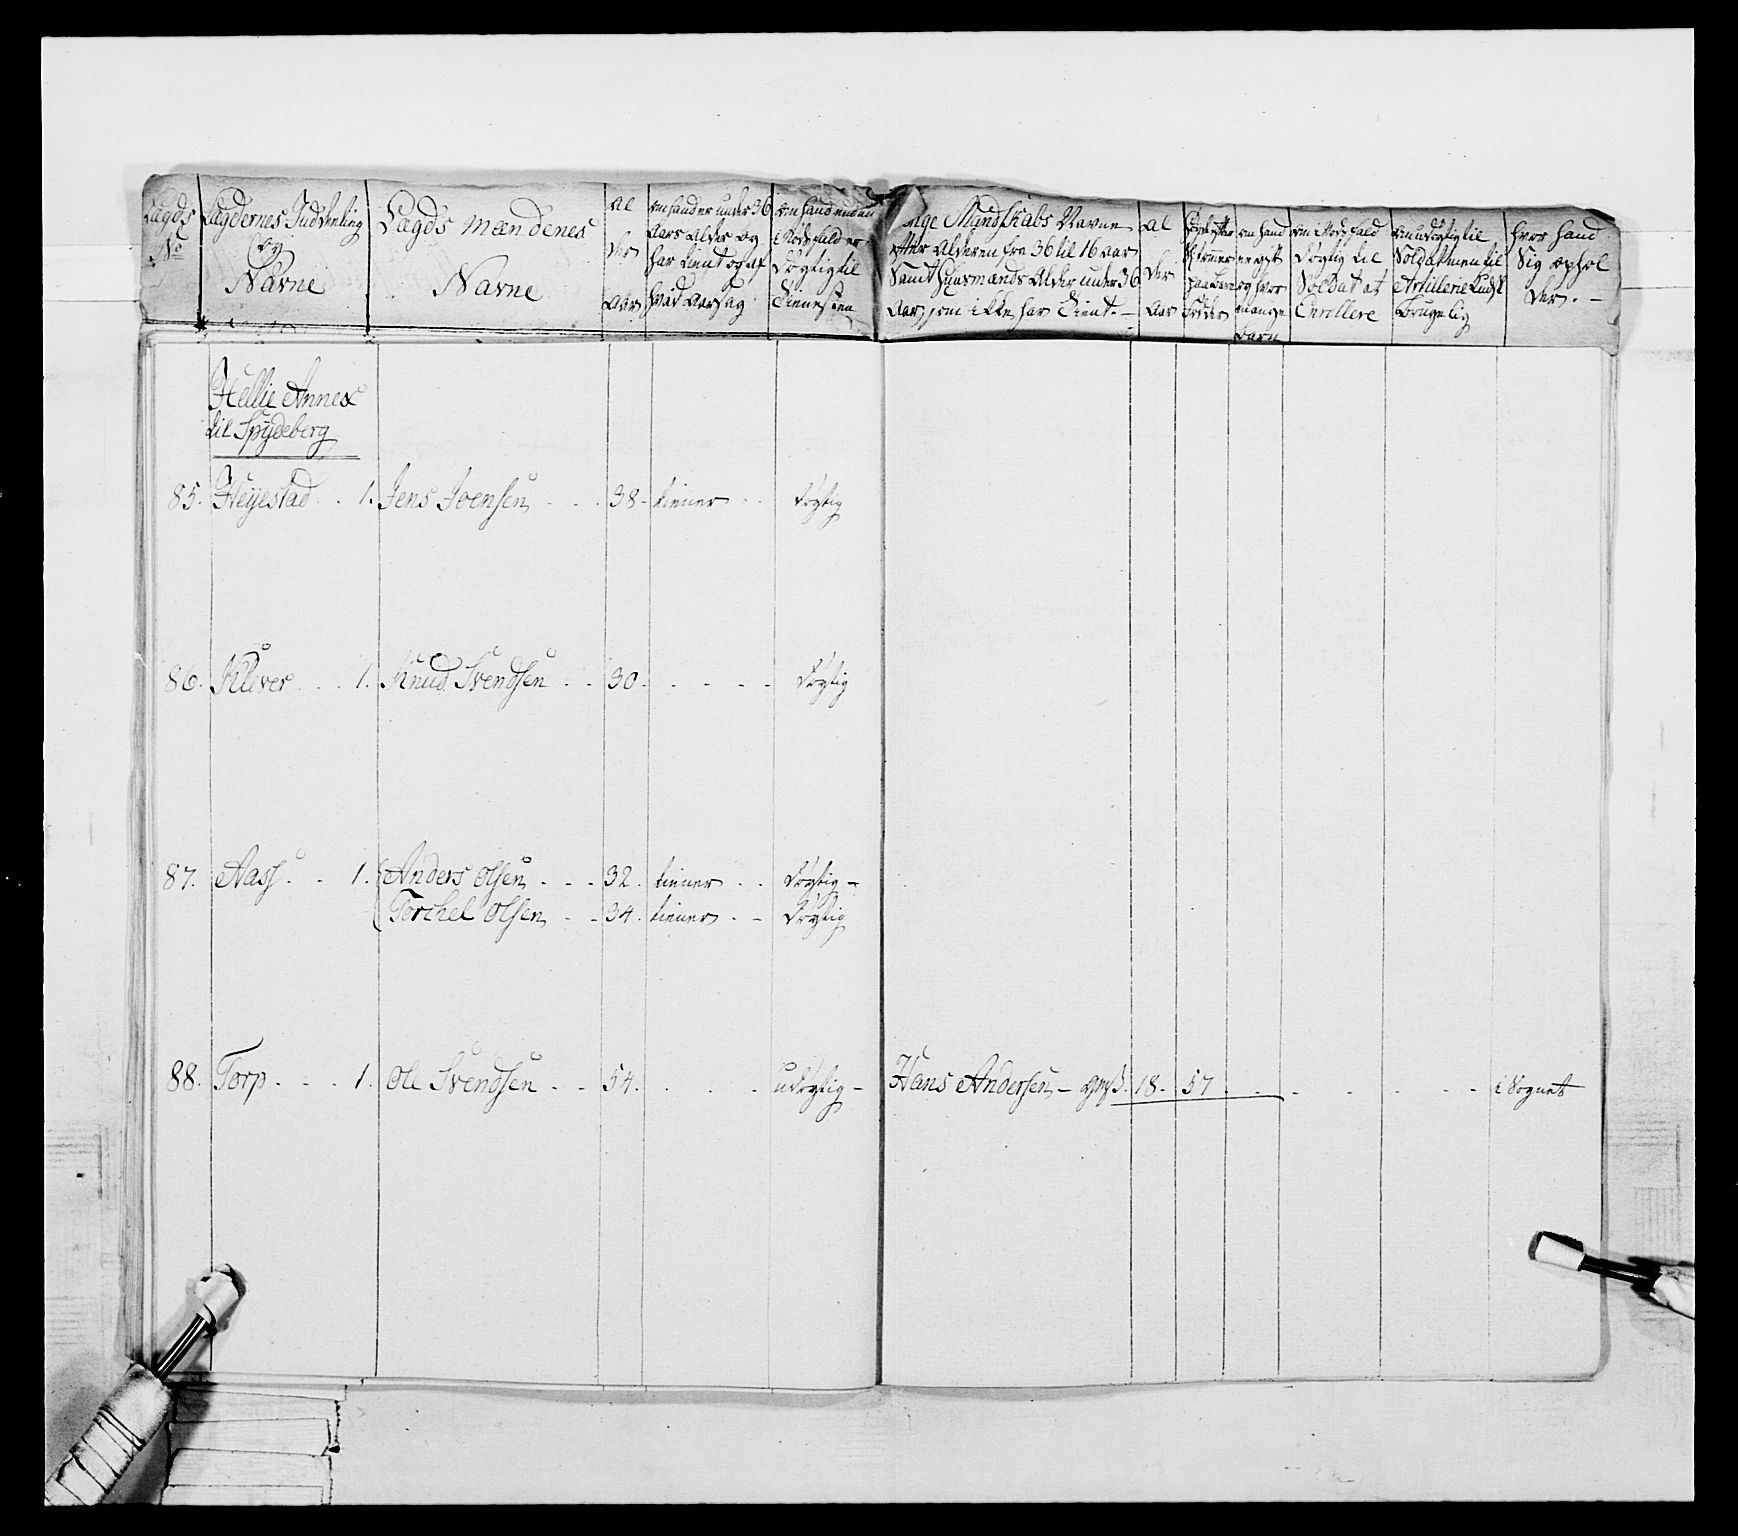 Lægds
No
Lægdernes Inddeeling
og
Navne
Lægds Mændenes
Navne
Al
der
Aar
om hand er under 36
Aars Alder og
har tient og af
hvad Aarsag
om hand enten
i Nødsfald er
døgtig til
Tienesten
unge Mandskabs Navne
efter Alderen fra 36 til 16 aar
Samt Huusmænds Alder under 36
Aar, som ikke har Tient. —
Al
der
Aar
om hand
er gift
og hvor
mange
Barn
om i Nødsfald
døgtig til
Soldat at
Enrollere
om udøgtig til
Soldat men til
Artillerie Kudsk
Brugelig
hvor hand
Sig ophol
der. —
Hellie Annex
til Spydeberg
85. Heyestad . . 1. Jens Joensen . . . 38. tiener . . døgtig
86. Kluver . . . 1. Knud Svendsen . . 30. . . . . . døgtig
87. Aass . . 1. Anders Olsen . . . 32. tiener . . døgtig —
Torchel Olsen . . 34. tiener . . døgtig
88. Torp . . . 1. Ole Svendsen . . 54. . . . udøgtig — Hans Andersen — 18. 57 . . . . . . . i Sognet